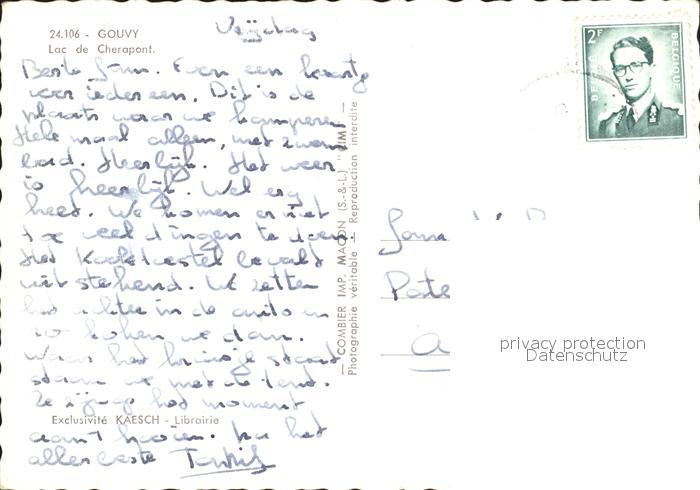 24.106 - GOUVY
Lac de Cherapont.
Vrijdag
Beste fam. Even een kaartje
voor iedereen. Dit is de
plaats waar we kamperen
Hele maal alleen, met zwem
bad. Heerlijk. Het weer
is heerlijk. Wel erg
heet. We komen er niet
toe veel dingen te doen.
Het kooktoestel bevalt
uitstekend. We zetten
het achter in de auto en
zo koken we dan.
Waar het kruisje staat
staan we met de tent.
Ze zijn op het moment
Exclusivité KAESCH - Librairie
aan 't hooien. Nu het
allerbeste
COMBIER IMP. MACON (S.-&-L.) "CIM"
Photographie véritable - Reproduction interdite
2F
BELGIE BELGIQUE
Fam
Pote
a
privacy protection
Datenschutz